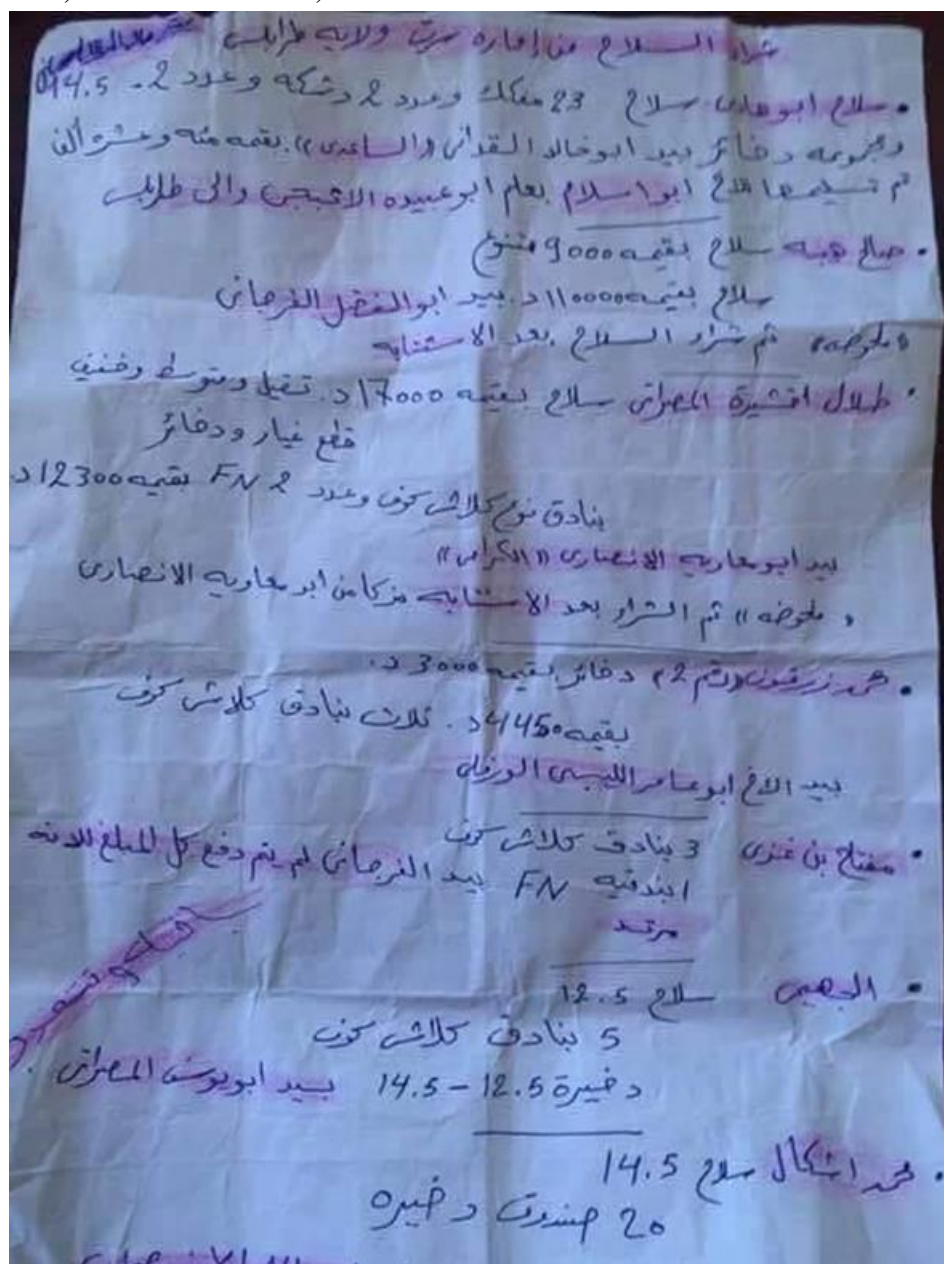 شراء السلاح من إمارة سرت ولاية طرابلس
• سلاح ابوهادى سلاح 23 مفكك وعدد 2 دشكه وعدد 2 - 14.5
ومجموعه دخائر بيد ابوخالد القدانى (الساعدى) بقيمه مئه وعشر ألف
تم تسليمها للاخ ابو اسلام بعلم ابو عبيده الاثبجى والى طرابلس
• صالح هبه سلاح بقيمه 9000 متنوع
سلاح بقيمه 110000 د. بيد ابوالفضل الفرجانى
«ملحوضه» تم شراء السلاح بعد الاستتابه
• طلال افشيرة المصراتى سلاح بقيمه 17000 د. تقيل ومتوسط وخفيف
قطع غيار ودخائر
بنادق نوع كلاش كوف وعدد 2 FN بقيمه 12300 د
بيد ابو معاويه الانصارى «الكرامى»
«ملحوضه» تم الشراء بعد الاستتابه مزكا من ابو معاويه الانصارى
• محمد زرقون (رقم 2) دخائر بقيمه 3000 د.
بقيمه 4450 د. ثلاث بنادق كلاش كوف
بيد الاخ ابو عامر الليبى الورفلى
• مفتاح بن غزى 3 بنادق كلاش كوف
1 بندقيه FN بيد الفرجانى لم يتم دفع كل المبلغ لانه
مرتد
• الجهيمى سلاح 12.5
5 بنادق كلاش كوف
دخيرة 12.5 - 14.5 بيد ابويوسف المصراتى
• محمد اشكال سلاح 14.5
20 صندوق دخيره